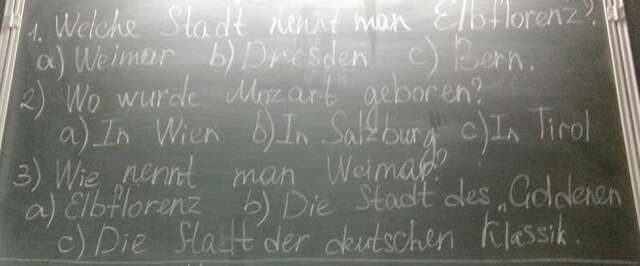 1. Welche Stadt nennt man Elbflorenz?
a) Weimar b) Dresden c) Bern.
2) Wo wurde Mozart geboren?
a) In Wien b) In Salzburg c) In Tirol
3) Wie nennt man Weimar?
a) Elbflorenz b) Die Stadt des „Goldenen
c) Die Stadt der deutschen Klassik.